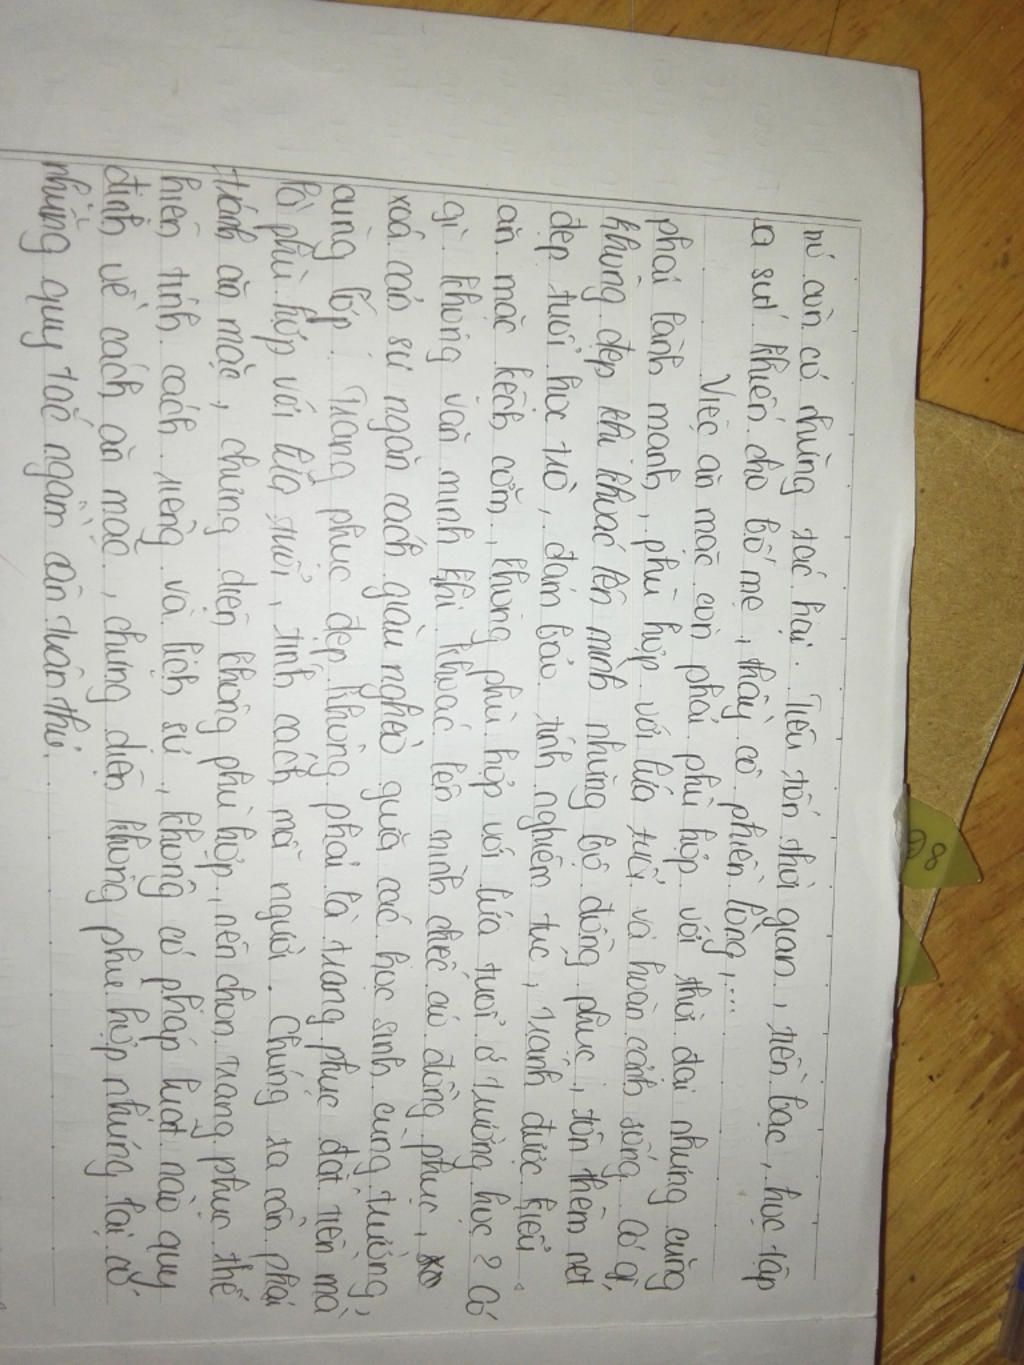 nó còn có những tác hại. Tiêu tốn thời gian, tiền bạc, học tập
sa sút khiến cho bố mẹ, thầy cô phiền lòng,...
Việc ăn mặc còn phải phù hợp với thời đại nhưng cũng
phải lành mạnh, phù hợp với lứa tuổi và hoàn cảnh sống. Có gì
không đẹp khi khoác lên mình những bộ đồng phục, tôn thêm nét
đẹp tuổi học trò, đảm bảo tính nghiêm túc, tránh được kiểu
ăn mặc kệch cỡm, không phù hợp với lứa tuổi ở trường học? Có
gì không văn minh khi khoác lên mình chiếc áo đồng phục,
xoá cán sự ngăn cách giàu nghèo giữa các học sinh cùng trường,
cùng lớp. Trang phục đẹp không phải là trang phục đắt tiền mà
là phù hợp với lứa tuổi, tính cách mỗi người. Chúng ta cần phải
tránh ăn mặc, chưng diện không phù hợp, nên chọn trang phục thể
hiện tính cách riêng và lịch sử, không có pháp luật nào quy
định về cách ăn mặc, chưng diện không phù hợp nhưng lại có
những quy tắc ngầm cần tuân thủ.
8